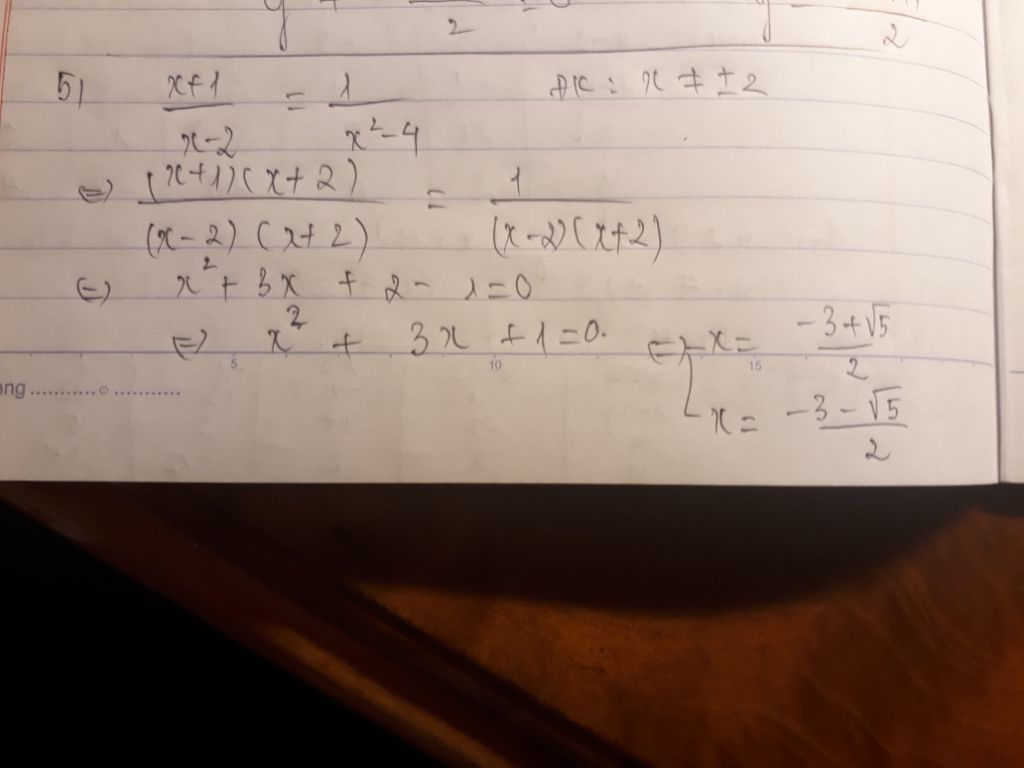 2 2
5) x+1 / x-2 = 1 / x²-4 ĐK: x ≠ ±2
⇔ (x+1)(x+2) / (x-2)(x+2) = 1 / (x-2)(x+2)
⇔ x² + 3x + 2 - 1 = 0
⇔ x² + 3x + 1 = 0. ⇔ [ x = -3+√5 / 2
x = -3-√5 / 2
5 10 15
ang ...........o...........